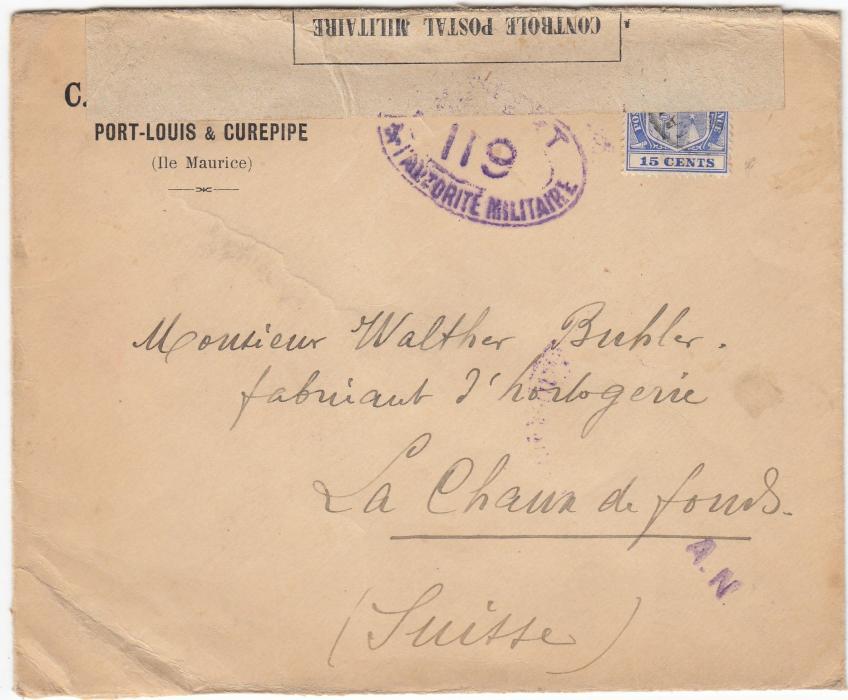 CONTROLE POSTAL MILITAIRE
C.
PORT-LOUIS & CUREPIPE
(Ile Maurice)
119
L'AUTORITÉ MILITAIRE
15 CENTS
Monsieur Walther Buhler.
fabricant d'horlogerie
La Chaux de fonds.
(Suisse)
A.N.